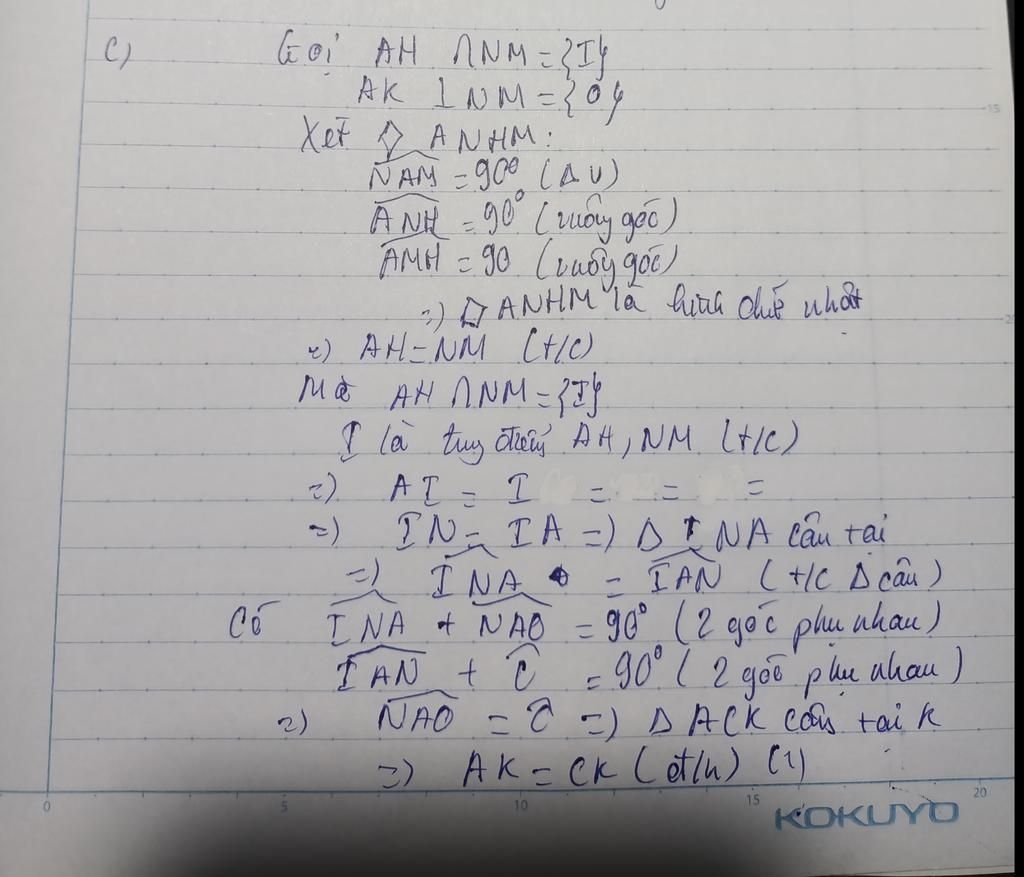 c) Gọi AH ∩ NM = {I}
AK ⊥ NM = {O}
Xét ◇ ANHM:
NAM = 90° (Δ v)
ANH = 90° (vuông góc)
AMH = 90 (vuông góc)
=) ▱ ANHM là hình chữ nhật
=) AH = NM (t/c)
Mà AH ∩ NM = {I}
I là trung điểm AH, NM (t/c)
=) AI = I = = =
=) IN = IA =) Δ INA cân tại
=) INA = IAN (t/c Δ cân)
Có INA + NAO = 90° (2 góc phụ nhau)
IAN + C = 90° (2 góc phụ nhau)
=) NAO = C =) Δ ACK cân tại K
=) AK = CK (đ/n) (1)
0 5 10 15 20
KOKUYO